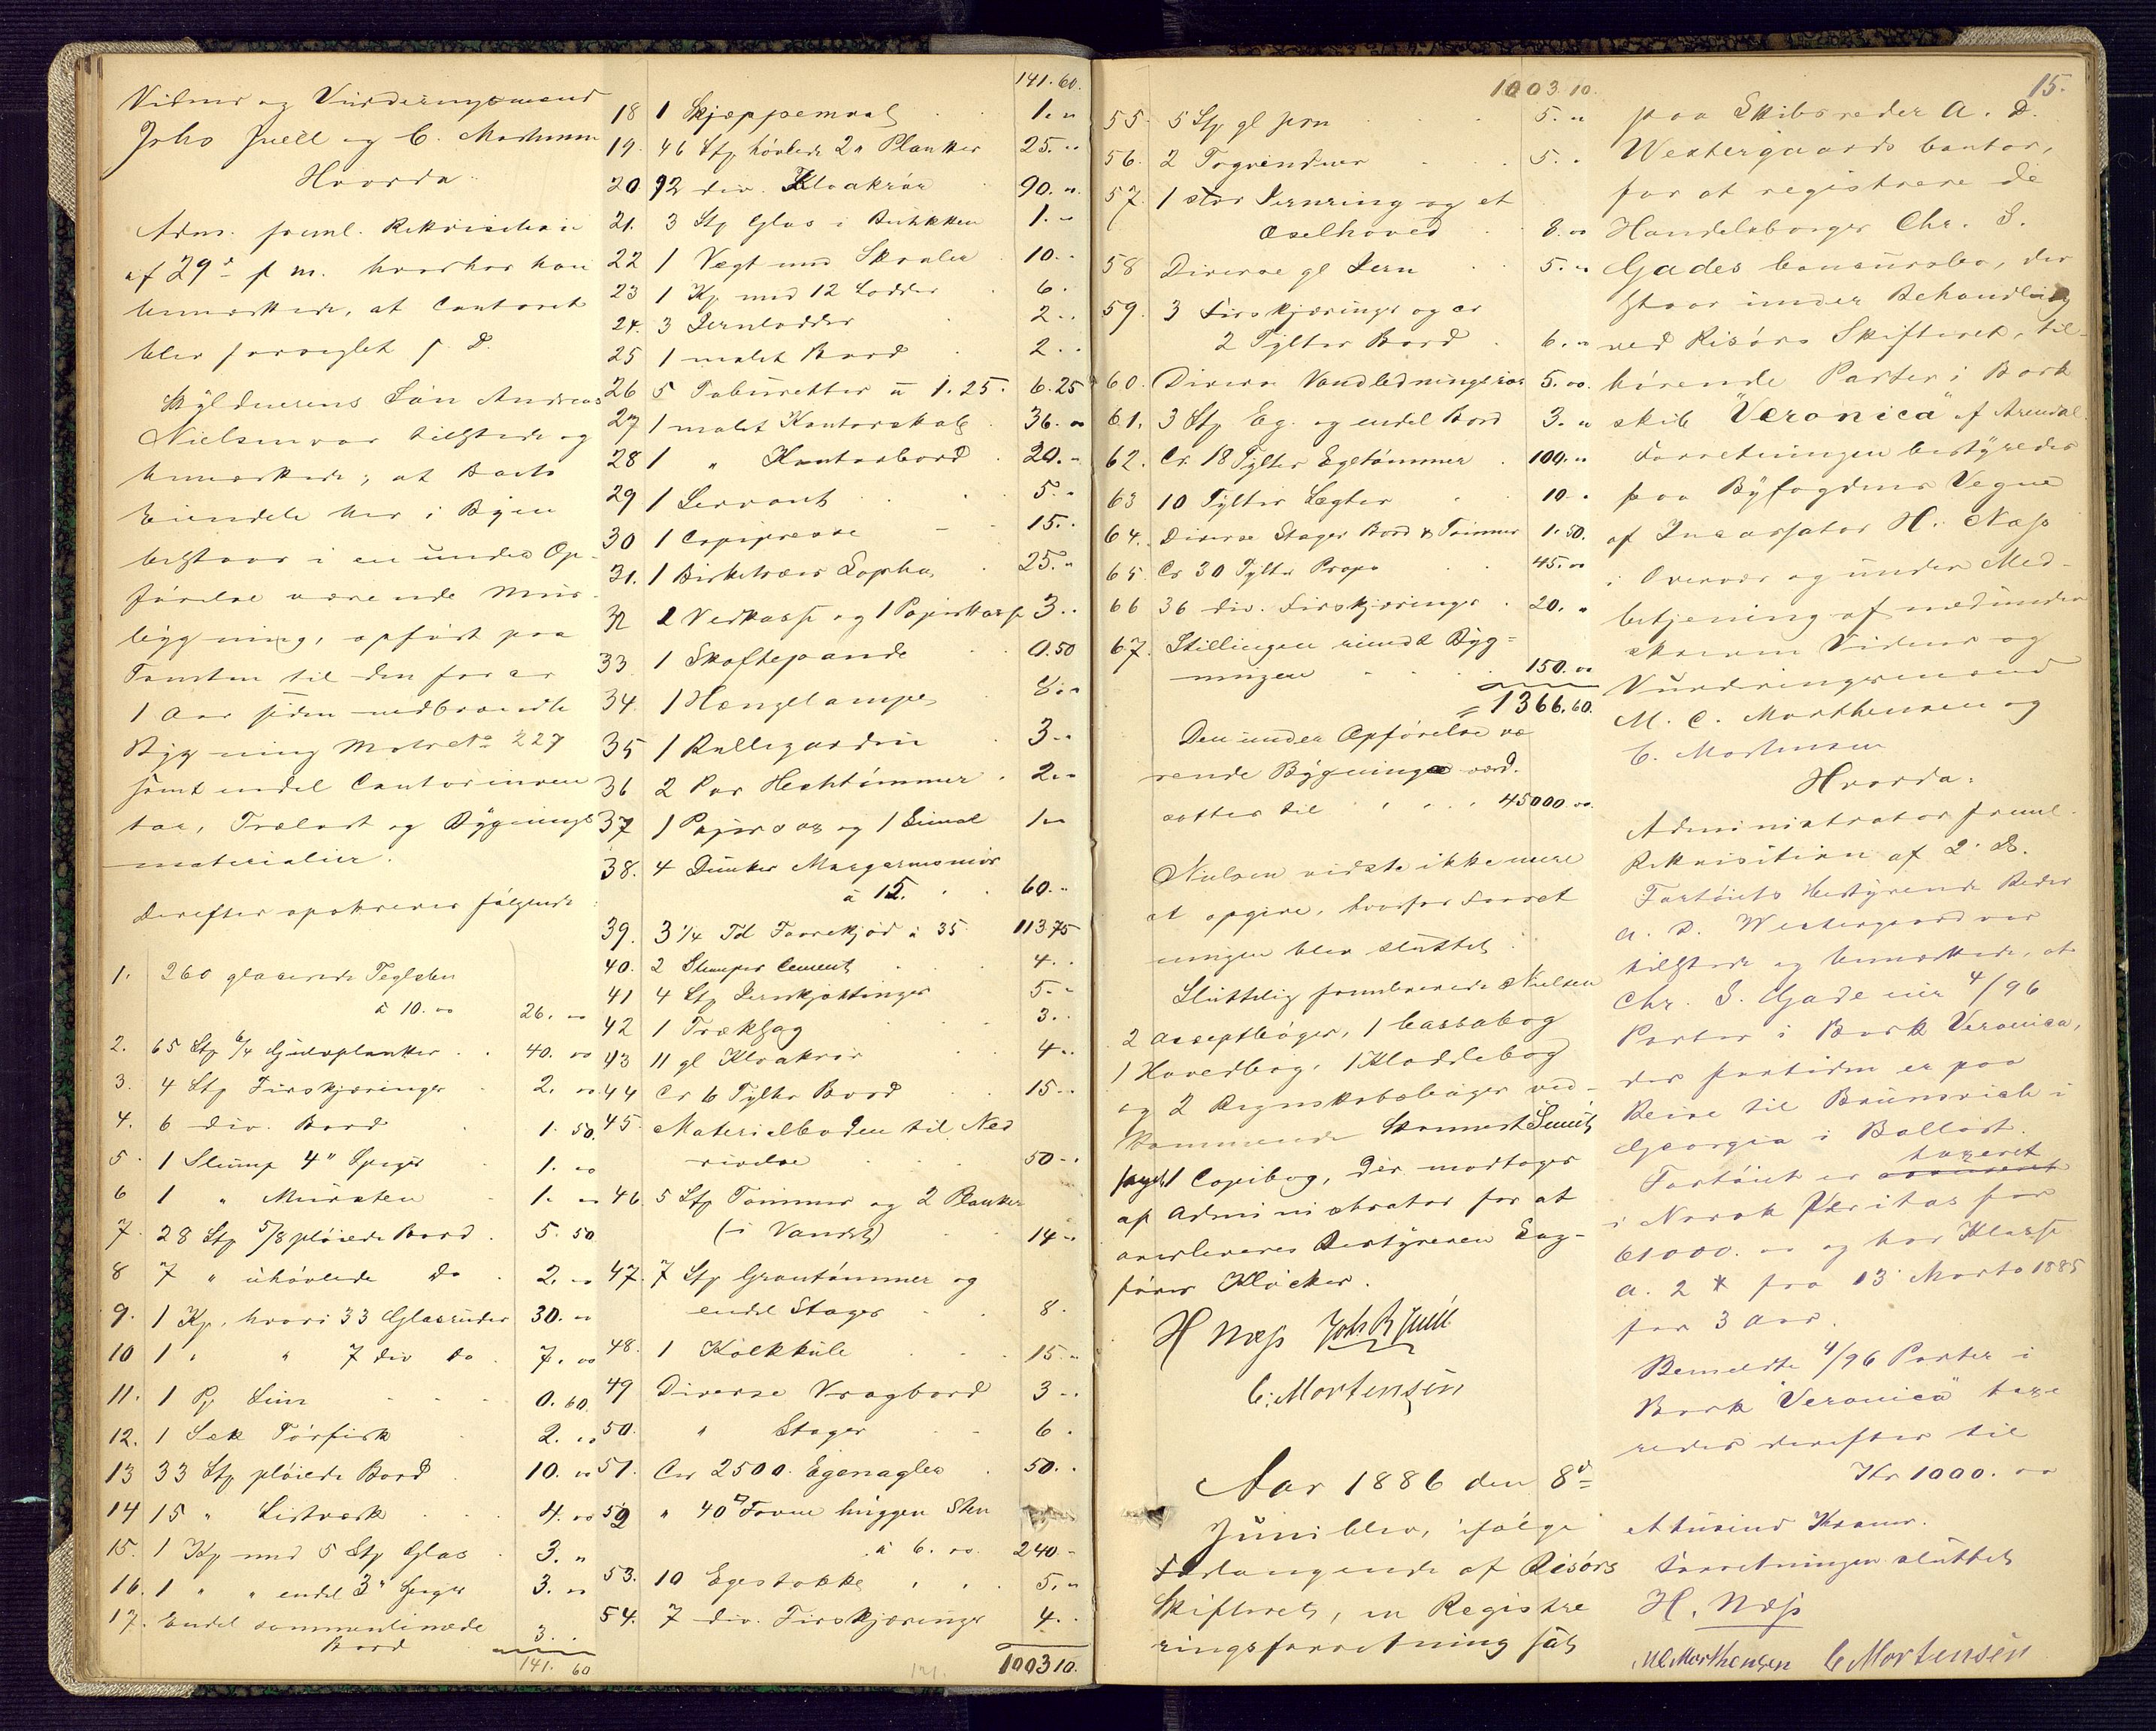 Vidner og Vurderingsmænd
Johs Juell og C. Mortensen
Hvorda
Adm. freml. Rekvisition
af 29de f. m. hvorhos han
bemærkede, at Contoret
blev forseglet s. D.
Skyldnerens Søn Andreas
Nielsen var tilstede og
bemærkede, at Boets
Eiendele her i Byen
bestaar i en under Op-
førelse værende Mur-
bygning, opført paa
Tomten til den for ca
1 Aar siden nedbrændte
Bygning Matr No 227
samt endel Contorinven
tar, Trælast og Bygnings
materialier.
Derefter opskreves følgende:
1. 260 glaserede Teglsten
à 10.00 26. 00
2. 65 Stk 6/4 Gulvplanker . . 40. 00
3. 4 Stk Firskjæringer . 2. 00
4. 6 div. Bord . 1. 50
5. 1 Slump 4" Spiger . 1. 00
6 1 " Mursten . 1. 00
7. 28 Stk 5/8 pløiede Bord . 5. 50
8 7 " uhøvlede Do . 2. 00
9. 1 Kp. hvori 33 Glasruder 30. 00
10 1 " " 7 div Do . 7. 00
11. 1 Pz Lim . . . 0. 60
12. 1 Sæk Tørfisk . 2. 00
13 33 Stk pløiede Bord . 10. 00
14 15 " Listværk . . . 4. 00
15. 1 Kp med 5 Stk Glas . 3. "
16. 1 " " endel 3" Spiger 3. 00
17. Endel sammenlimede
Bord 3. .
141. 60
141. 60.
18 1 Skjæppemaal . . 1. "
19. 46 Stk høvlede 2" Planker 25. "
20 92 div. Kloakrør . 90. "
21. 3 Stk Glas i Butikken 1. "
22 1 Vægt med Skaaler . 10. .
23 1 Kp med 12 Lodder . 6.
24. 3 Jernlodder . 2. .
25 1 malet Bord . 2. .
26 5 Taburetter à 1.25. 6.25
27 1 malet Kontorskab . 36. 00
28 1 " Kontorbord . 20. "
29 1 Servant . . . 5. "
30 1 Copipresse . . 15. .
31. 1 Birketræes Sopha . 25. "
32 1 Vedkasse og 1 Papirkasse 3. .
33 1 Skaftepande . . 0.50
34. 1 Hængelampe . 8. "
35 1 Rullegardin . 3. .
36 2 Par Hestetømmer . 2. "
37 1 Papirsax og 1 Limal 1. "
38. 4 Dunker Margarinsmør
à 15. . . 60. "
39. 3 1/4 Td Faarekjød à 35 113.75
40. 2 Slumper Cement . 4. .
41 4 Stk Jernkjættinger . 5. .
42 1 Træksag . . 3. .
43 11 gl Kloakrør . 4. .
44 Ca 6 Tylter Bord . . 15. .
45. Materialboden til Ned
rivelse . . . 50. .
46. 5 Stk Tømmer og 2 Planker
(i Vandet) . . 14. "
47. 7 Stk Grantømmer og
endel Stager . . 8.
48. 1 Kalkkule . . . 15. "
49 Diverse Vragbord 3. .
50. " Stager . . 6 .
51. Ca 2500. Egenagler . 50. .
52 " 40 □ Favne huggen Sten
à 6. 00. 240. "
53. 10 Egestokke . . . 5. "
54. 7 div. Firskjæringer 4. .
1003 10.
1003 10.
55. 5 Stk gl Jern . . . 5. "
56. 2 Tagrender . . . 5. .
57. 1 stor Jernring og et
Æselhoved . . 8. 00
58 Diverse gl Jern . . 5. "
59. 3 Firskjæringer og ca
2 Tylter Bord . 6. "
60. Diverse Vandledningsrør 5. 00.
61. 3 Stk Eg. og endel Bord 3. "
62. Ca 18 Tylter Egetømmer . 100. "
63 10 Tylter Lægter . . 10. .
64. Diverse Stager Bord & Tømmer 1. 50.
65. Ca 30 Tylter Props . . 45. 00
66 36 div. Firskjæringer . 20. "
67. Stillingen rundt Byg=
ningen . . . 150. 00
= 1366. 60.
Den under Opførelse væ
rende Bygning værd.
sættes til . . . . 45000. 00.
Nielsen vidste ikke mere
at opgive, hvorfor Forret
ningen blev sluttet.
Sluttelig fremleverede Nielsen
2 Acceptbøger, 1 Cassabog
1 Hovedbog, 1 Kladdebog
og 2 Regnskabsbøger ved-
kommende
samt 1 Copibog, der modtoges
af Administrator for at
overleveres Bestyreren Sag-
fører Kløcker.
H Næss Joh B Juell
C. Mortensen
Aar 1886 den 8de
Juni blev, ifølge
Forlangende af Risørs
Skifteret, en Registre
ringsforretning sat
15.
paa Skibsreder A. D.
Westergaards Contor,
for at registrere de
Handelsborger Chr. S.
Gades Concursbo, der
staar under Behandling
ved Risørs Skifteret, til-
hørende Parter i Bark
skib "Veronica" af Arendal.
Forretningen bestyredes
paa Byfogdens Vegne
af Incassator H. Næss
i Overvær og under Med-
betjening af medunder
skrevne Vidner og
Vurderingsmænd
M. C. Morthensen og
C. Mortensen
Hvorda:
Administrator freml.
Rekvisition af 2. ds.
Fartøiets Bestyrende Reder
A. D. Westergaard var
tilstede og bemærkede, at
Chr. S. Gade eier 4/96
Parter i Bark Veronica,
der fortiden er paa
Reise til Brunsvick i
Georgia i Ballast.
Fartøiet er taxeret
i Norsk Veritas for
61000. 00 og har Klasse
A. 2 * fra 13 Marts 1885
for 3 Aar.
Bemeldte 4/96 Parter i
Bark "Veronica" taxe
redes derefter til
Kr 1000. 00
et tusind Kroner.
Forretningen sluttet
H. Næss
MC Morthensen C Mortensen